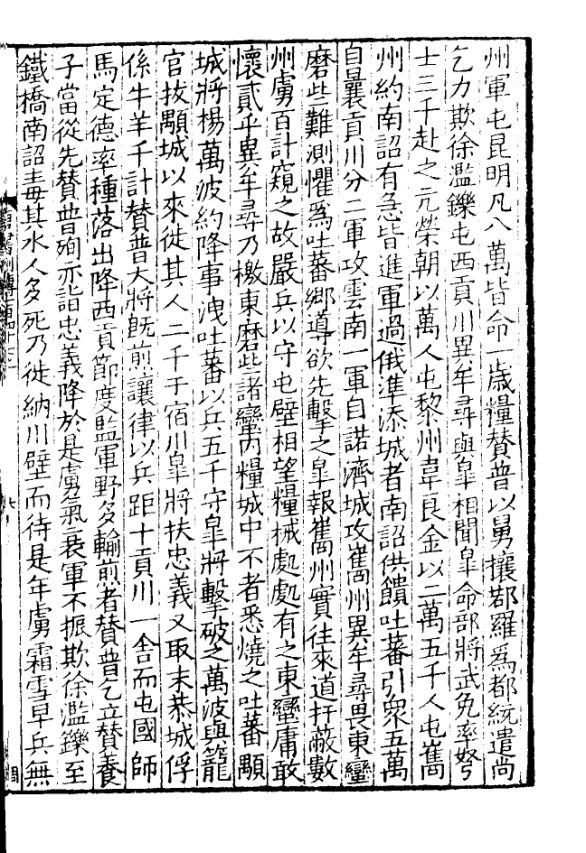 州軍屯昆明凡八萬皆命一歲糧贊普以舅攘鄀羅爲都統遣尚
乞力欺徐濫鑠屯西貢川異牟尋與皐相聞皐命部將武免率弩
士三千赴之亢榮朝以萬人屯黎州韋良金以二萬五千人屯巂
州約南詔有急皆進軍過俄準添城者南詔供饋吐蕃引衆五萬
自曩貢川分二軍攻雲南一軍自諾濟城攻巂州異牟尋畏東蠻
磨些難測懼爲吐蕃鄉導欲先擊之皐報巂州實往來道扞蔽數
州虜百計窺之故嚴兵以守屯壁相望糧械處處有之東蠻庸敢
懷貳乎異牟尋乃檄東磨些諸蠻內糧城中不者悉燒之吐蕃顒
城將楊萬波約降事洩吐蕃以兵五千守皐將擊破之萬波與籠
官拔顒城以來徙其人二千于宿川皐將扶忠義又取末恭城俘
係牛羊千計贊普大將旣煎讓律以兵距十貢川一舍而屯國師
馬定德率種落出降西貢節度監軍野多輸煎者贊普乞立贊養
子當從先贊普殉亦詣忠義降於是虜氣衰軍不振欺徐濫鑠至
鐵橋南詔毒其水人多死乃徙納川壁而待是年虜霜雪早兵無